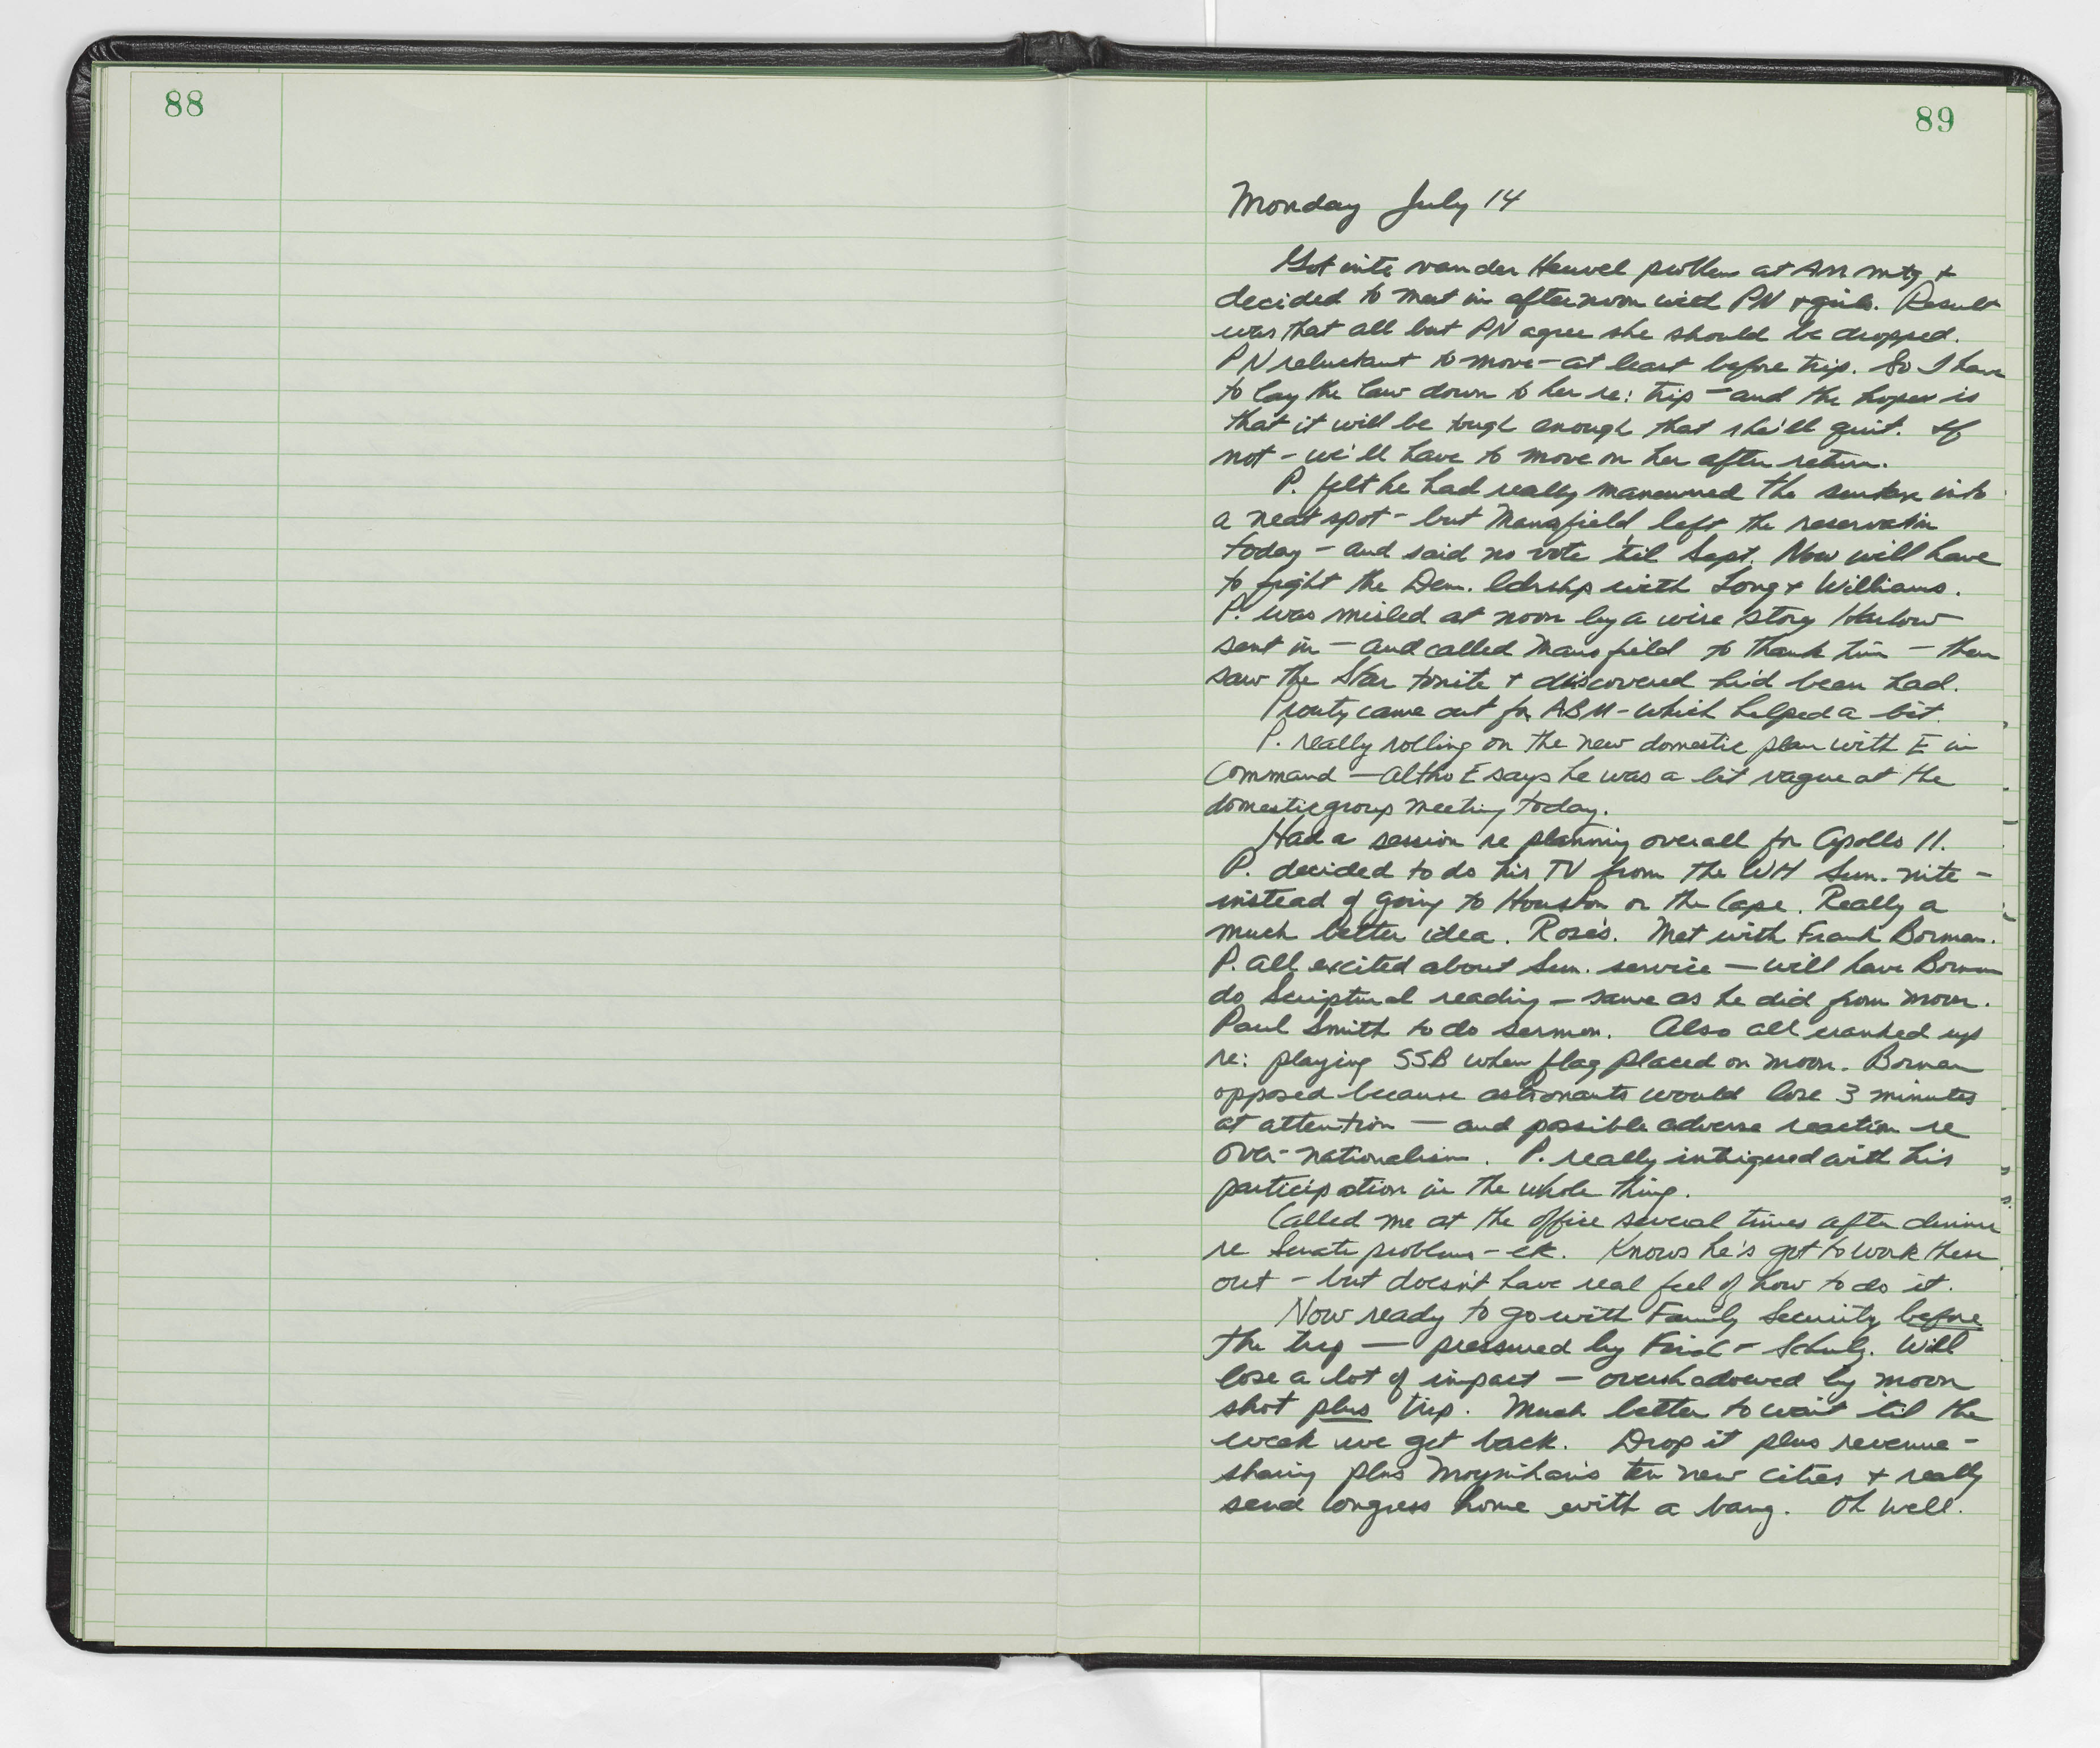 88
89
Monday July 14
Got into van der Heuvel problem at AM mtg +
decided to meet in afternoon with PN + girls. Result
was that all but PN agree she should be dropped.
PN reluctant to move - at least before trip. So I have
to lay the law down to her re: trip - and the hope is
that it will be tough enough that she'll quit. If
not - we'll have to move on her after return.
P. felt he had really maneuvered the surtax into
a neat spot - but Mansfield left the reservation
today - and said no vote 'til Sept. Now will have
to fight the Dem. ldrshp with Long + Williams.
P. was misled at noon by a wire story Harlow
sent in - and called Mansfield to thank him - then
saw the Star tonite + discovered he'd been had.
Prouty came out for ABM - which helped a bit.
P. really rolling on the new domestic plan with E in
command - altho E says he was a bit vague at the
domestic group meeting today.
Had a session re planning overall for Apollo 11.
P. decided to do his TV from the WH Sun. nite -
instead of going to Houston or the Cape. Really a
much better idea. Rose's. Met with Frank Borman.
P. all excited about Sun. service - will have Borman
do Scriptural reading - same as he did from moon.
Paul Smith to do sermon. Also all cranked up
re: playing SSB when flag placed on moon. Borman
opposed because astronauts would lose 3 minutes
at attention - and possible adverse reaction re
over-nationalism. P. really intrigued with his
participation in the whole thing.
Called me at the office several times after dinner
re Senate problems - etc. Knows he's got to work them
out - but doesn't have real feel of how to do it.
Now ready to go with Family Security before
the trip - pressured by Finch - Schulz. Will
lose a lot of impact - overshadowed by moon
shot plus trip. Much better to wait 'til the
week we get back. Drop it plus revenue-
sharing plus Moynihan's ten new cities + really
send Congress home with a bang. Oh well.